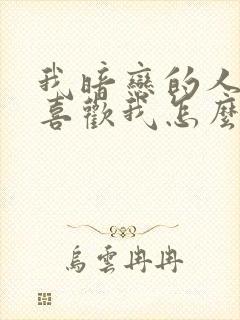 我暗戀的人
喜歡我怎麼
烏雲冉冉